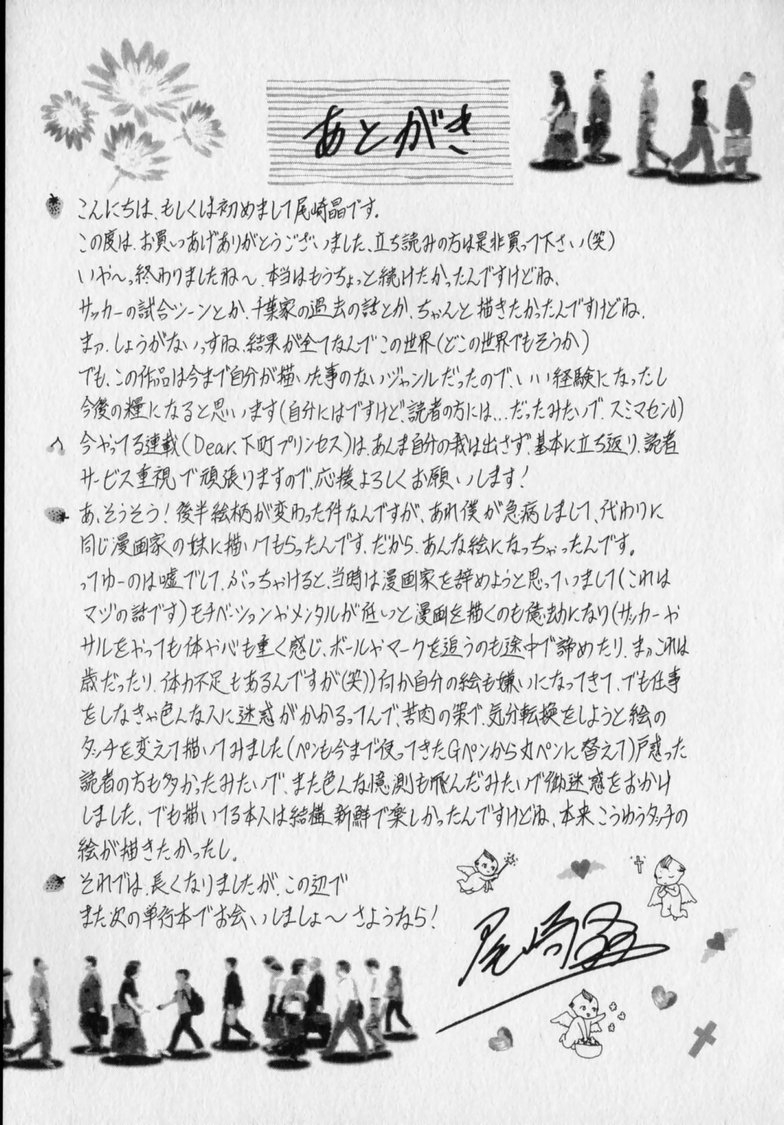 あとがき
こんにちは、もしくは初めまして尾崎晶です。
この度は、お買いあげありがとうございました、立ち読みの方は是非買って下さい(笑)
いや〜っ終わりましたね〜、本当はもうちょっと続けたかったんですけどね、
サッカーの試合シーンとか、千葉家の過去の話とか、ちゃんと描きたかったんですけどね、
まァ、しょうがないっすね、結果が全てなんでこの世界(どこの世界でもそうか)
でも、この作品は今まで自分が描いた事のないジャンルだったので、いい経験になったし
今後の糧になると思います(自分にはですけど、読者の方には…だったみたいで、スミマセン)
今やってる連載(Dear.下町プリンセス)は、あんま自分の我は出さず、基本に立ち返り、読者
サービス重視で頑張りますので、応援よろしくお願いします！
あ、そうそう！後半絵柄が変わった件なんですが、あれ僕が急病しまして、代わりに
同じ漫画家の妹に描いてもらったんです、だから、あんな絵になっちゃったんです。
ってゆーのは嘘でして、ぶっちゃけると、当時は漫画家を辞めようと思っていまして(これは
マヅの話です)モチベーションやメンタルが低いと漫画を描くのも億劫になり(サッカーや
サルをやっても体や心も重く感じ、ボールやマークを追うのも途中で諦めたり、まっこれは
歳だったり、体力不足もあるんですが(笑))何か自分の絵も嫌いになってきて、でも仕事
をしなきゃ色んな人に迷惑がかかるってんで、苦肉の策で、気分転換をしようと絵の
タッチを変えて描いてみました(ペンも今まで使ってきたGペンから丸ペンに替えて)戸惑った
読者の方も多かったみたいで、また色んな憶測も飛んだみたいで御迷惑をおかけ
しました、でも描いてる本人は結構、新鮮で楽しかったんですけどね、本来こうゆうタッチの
絵が描きたかったし。
それでは、長くなりましたが、この辺で
また次の単行本でお会いしましょ〜さようなら！
尾崎晶